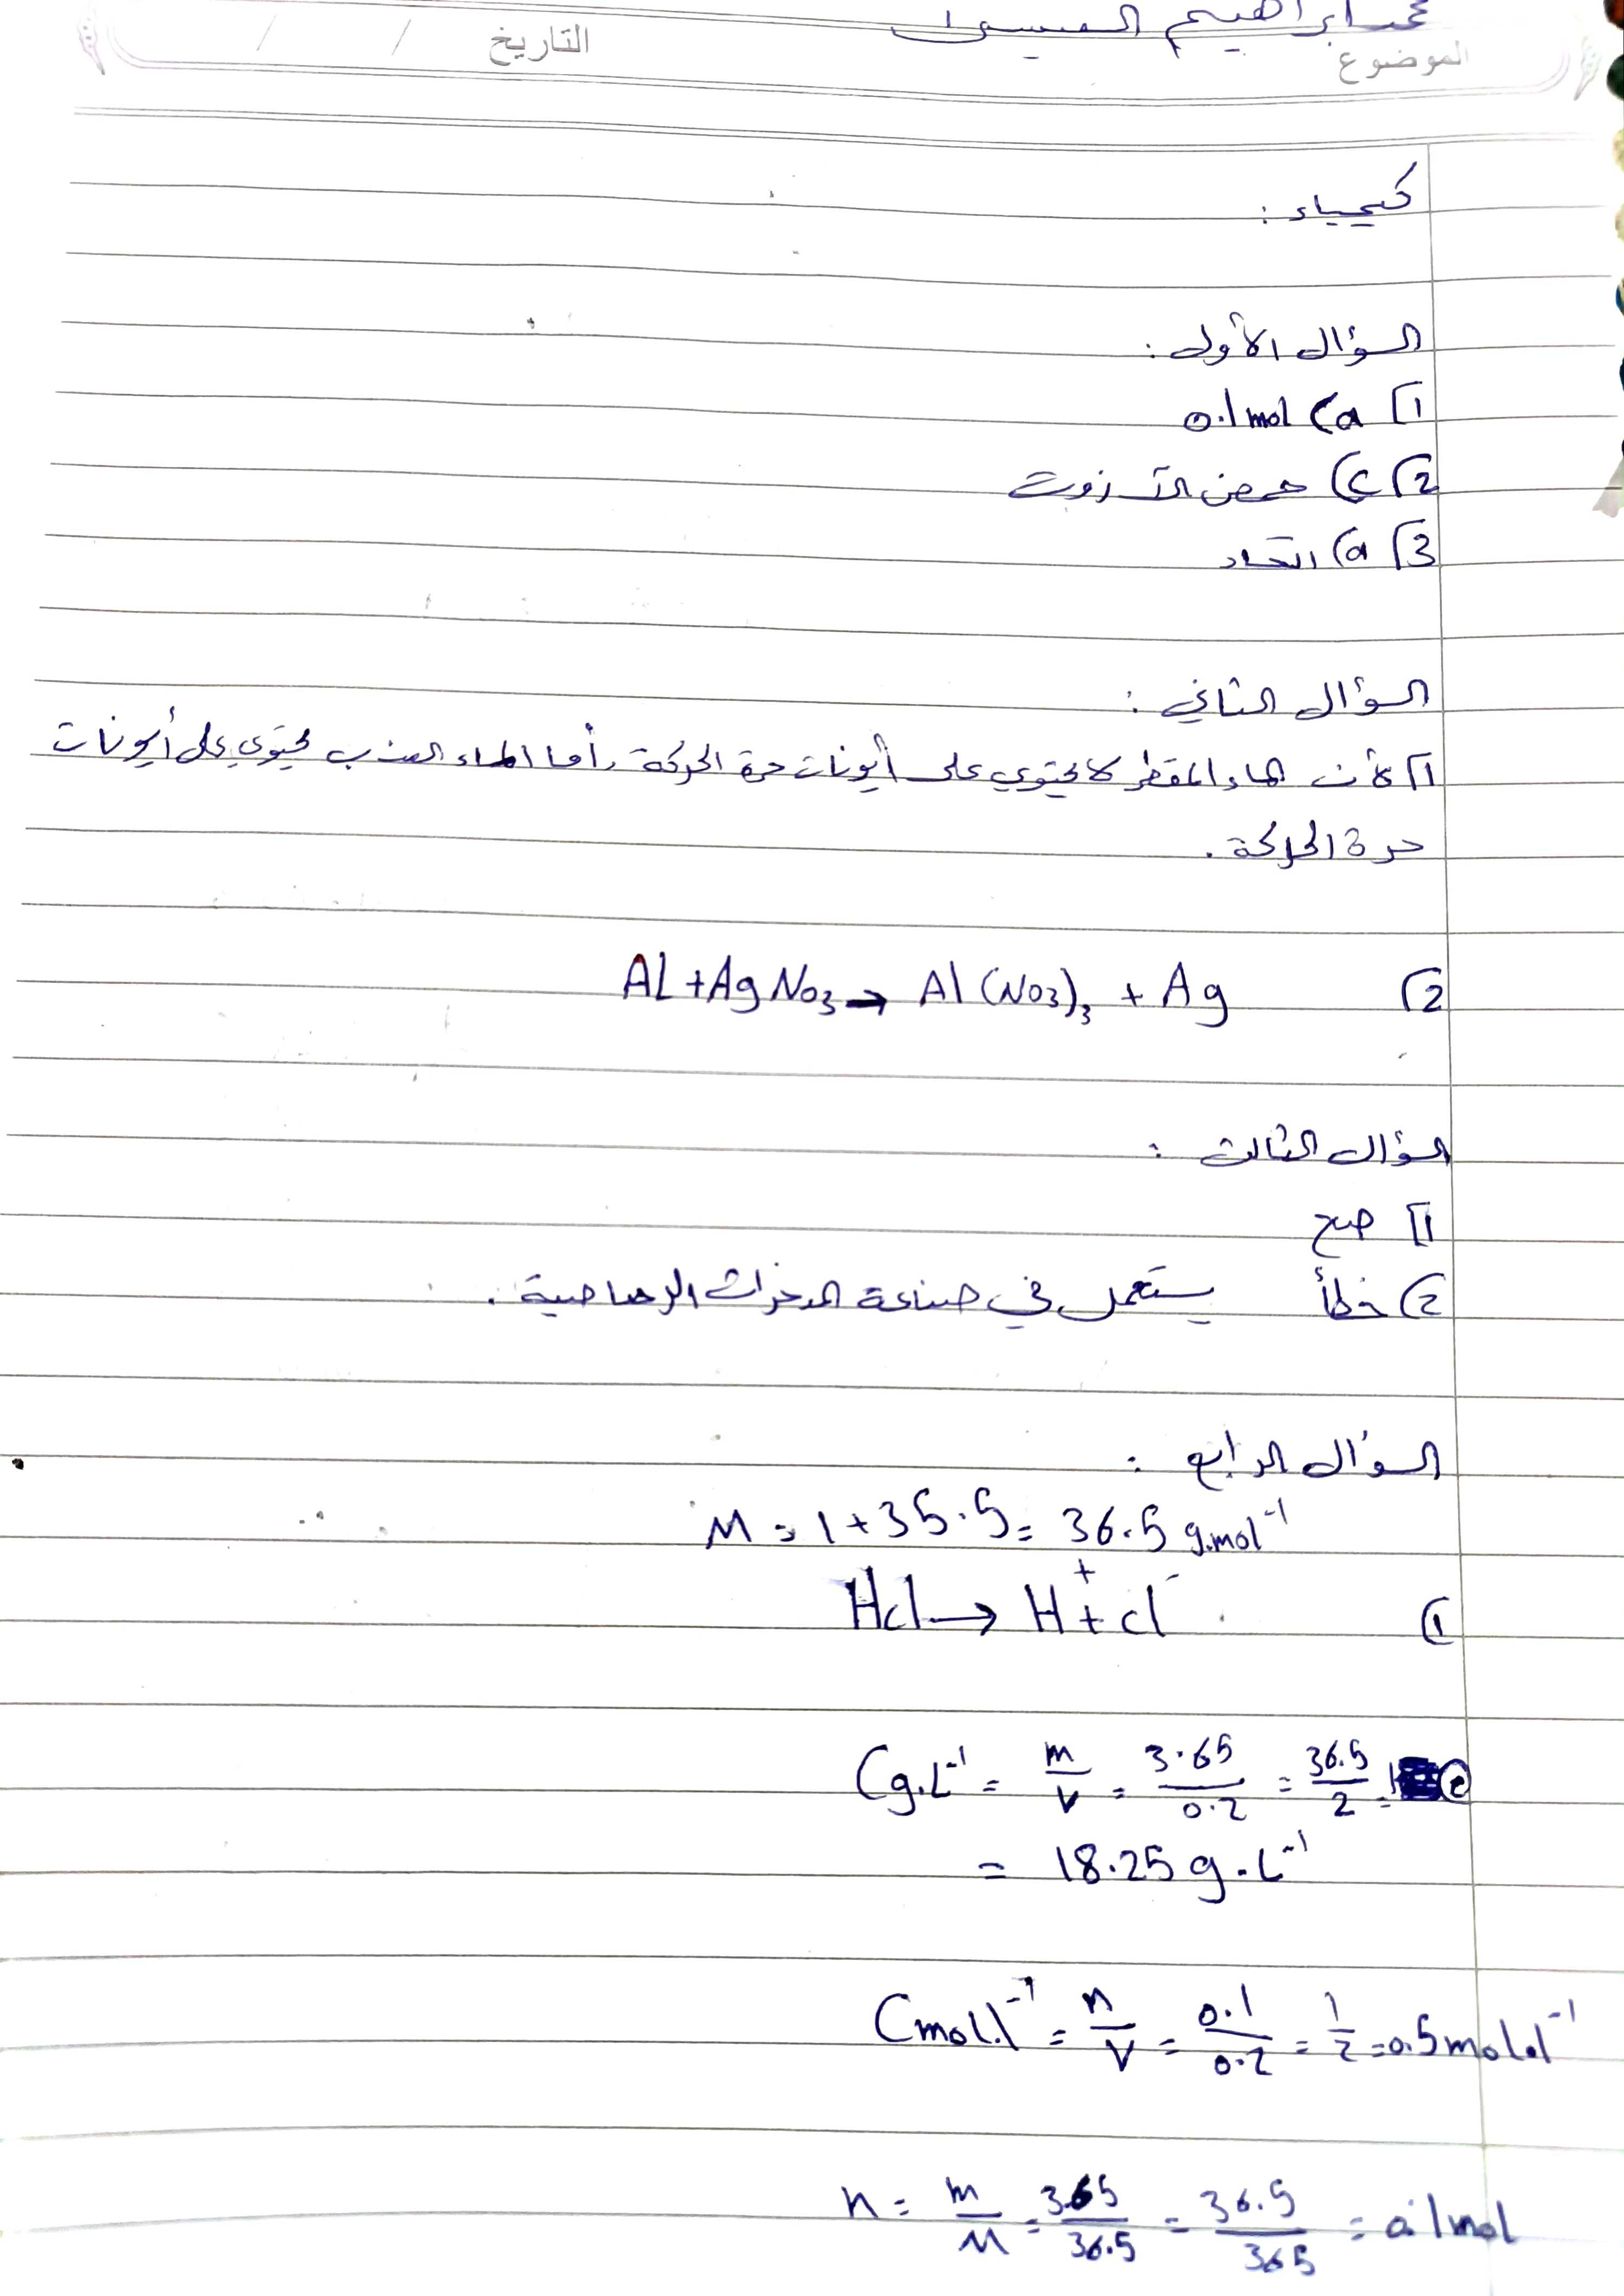 محمد ابراهيم العيسى
الموضوع
التاريخ / /
كيمياء :
السؤال الأول :
1] a) 0.1 mol
2] c) حمض الآزوت
3] a) اتحاد
السؤال الثاني :
1] لأن الماء المقطر لا يحتوي على أيونات حرة الحركة ، أما الماء العذب يحتوي على أيونات
حرة الحركة .
2] Al + AgNo3 → Al (No3)3 + Ag
السؤال الثالث :
1] صح
2) خطأ يستعمل في صناعة المدخرات الرصاصية .
السؤال الرابع :
M = 1 + 35.5 = 36.5 g.mol⁻¹
1) Hcl → H⁺ + cl⁻
2) Cg.L⁻¹ = m/v = 3.65/0.2 = 36.5/2 =
= 18.25 g.L⁻¹
Cmol.l⁻¹ = n/V = 0.1/0.2 = 1/2 = 0.5 mol.l⁻¹
n = m/M = 3.65/36.5 = 36.5/365 = 0.1 mol